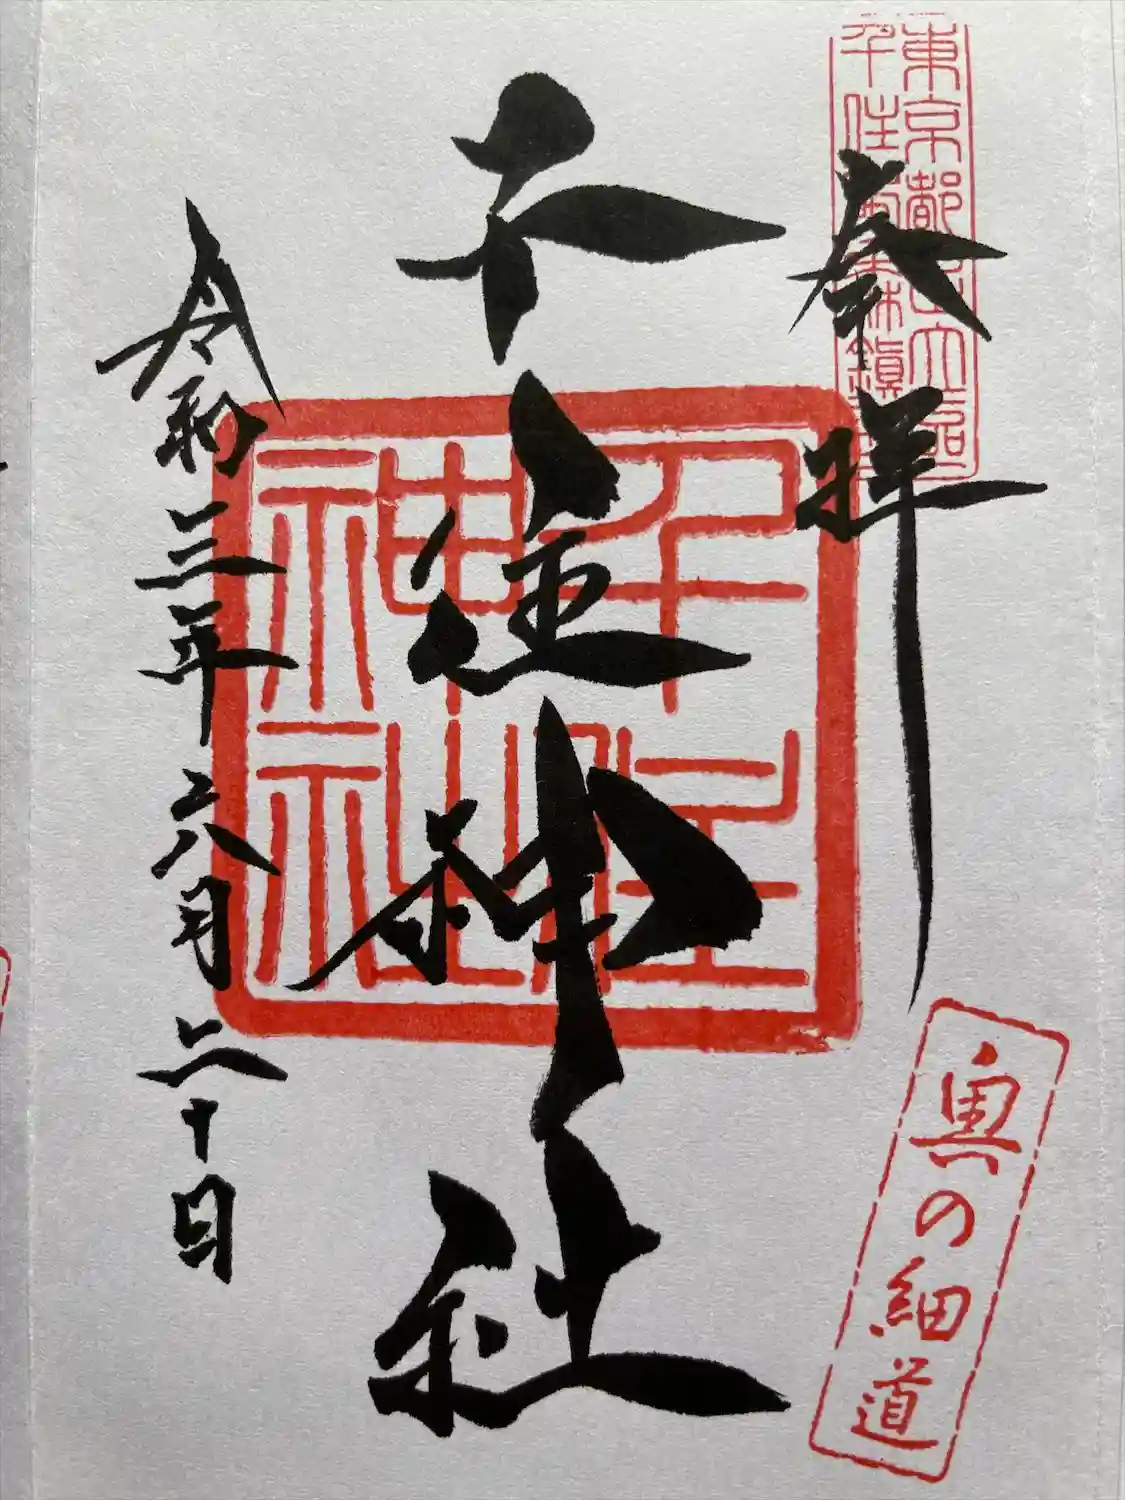 東京都足立區
千住 森鎮
奉拝
奥の細道
千住神社
千住
神社
令和三年六月二十日